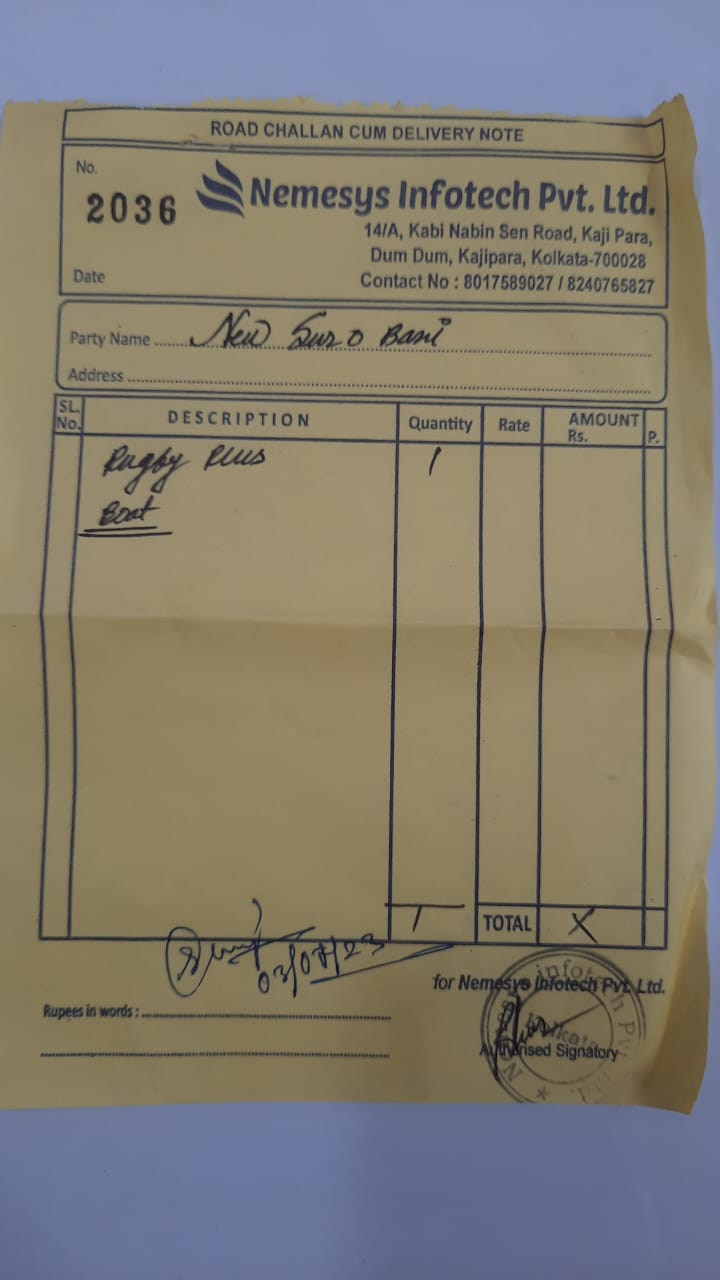 ROAD CHALLAN CUM DELIVERY NOTE
No.
2036
Nemesys Infotech Pvt. Ltd.
14/A, Kabi Nabin Sen Road, Kaji Para,
Dum Dum, Kajipara, Kolkata-700028
Date
Contact No : 8017589027 / 8240765827
Party Name New Suro Bani
Address
SL. No. DESCRIPTION Quantity Rate AMOUNT Rs. P.
Rugby Plus 1
Boat
1 TOTAL X
03/07/23
for Nemesys Infotech Pvt. Ltd.
Rupees in words :
Authorised Signatory
Nemesys Infotech Pvt. Ltd.
Kolkata